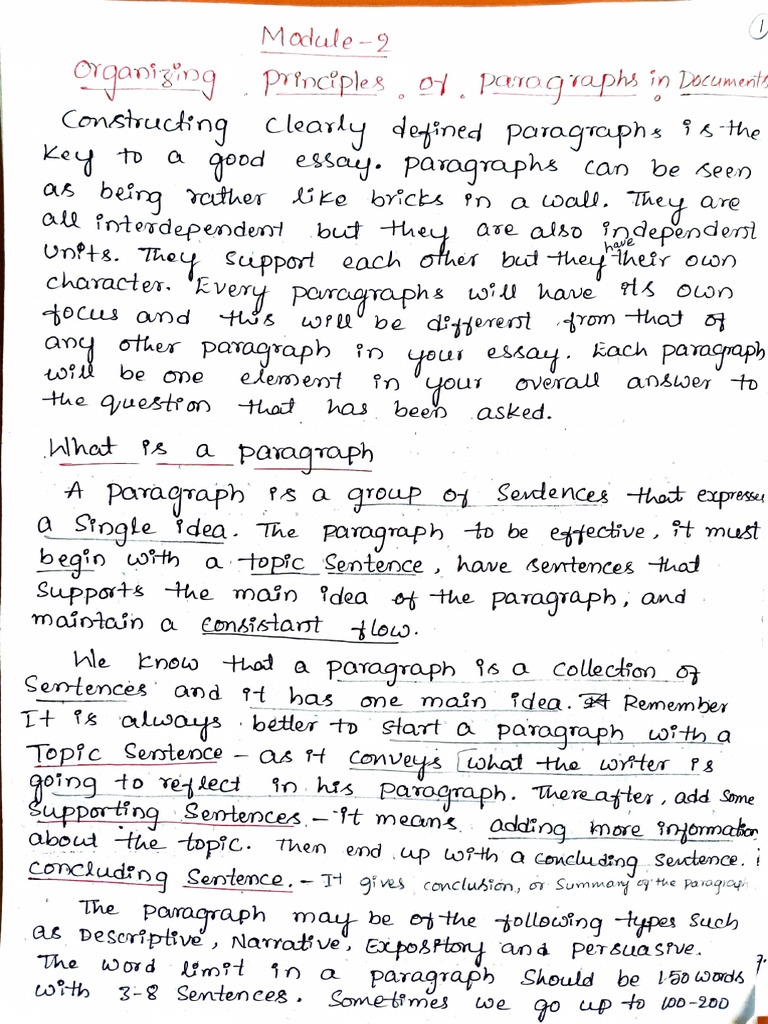 1
Module-2
Organizing Principles of Paragraphs in Documents
Constructing clearly defined paragraphs is the
key to a good essay. Paragraphs can be seen
as being rather like bricks in a wall. They are
all interdependent but they are also independent
units. They support each other but they have their own
character. Every paragraphs will have its own
focus and this will be different from that of
any other paragraph in your essay. Each paragraph
will be one element in your overall answer to
the question that has been asked.
What is a paragraph
A paragraph is a group of sentences that expresses
a single idea. The paragraph to be effective, it must
begin with a topic sentence, have sentences that
supports the main idea of the paragraph, and
maintain a consistant flow.
We know that a paragraph is a collection of
sentences and it has one main idea. Remember
It is always better to start a paragraph with a
Topic Sentence - as it conveys what the writer is
going to reflect in his paragraph. Thereafter, add some
supporting sentences - it means adding more information
about the topic. Then end up with a concluding sentence.
concluding sentence. - It gives conclusion, or summary of the paragraph
The paragraph may be of the following types such
as Descriptive, Narrative, Expository and persuasive.
The word limit in a paragraph should be 150 words
with 3-8 sentences. Sometimes we go up to 100-200